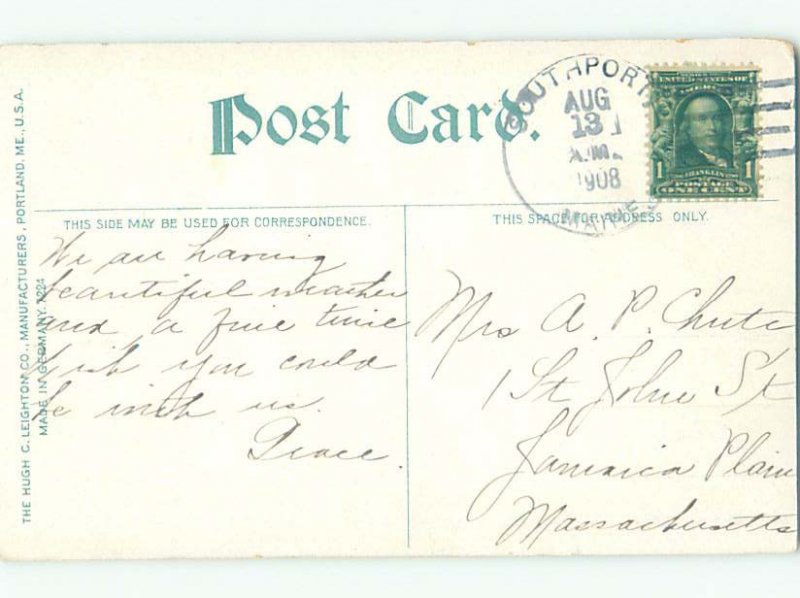 Post Card.
SOUTHPORT
AUG
13
A.M.
1908
MAINE
FRANKLIN
1 POSTAGE 1
ONE CENT
THIS SIDE MAY BE USED FOR CORRESPONDENCE.
THIS SPACE FOR ADDRESS ONLY.
We are having
beautiful weather
and a fine time
Wish you could
be with us.
Grace.
Mrs A. P. Chute
1 St John St
Jamaica Plain
Massachusetts
THE HUGH C. LEIGHTON CO., MANUFACTURERS, PORTLAND, ME., U.S.A.
MADE IN GERMANY.